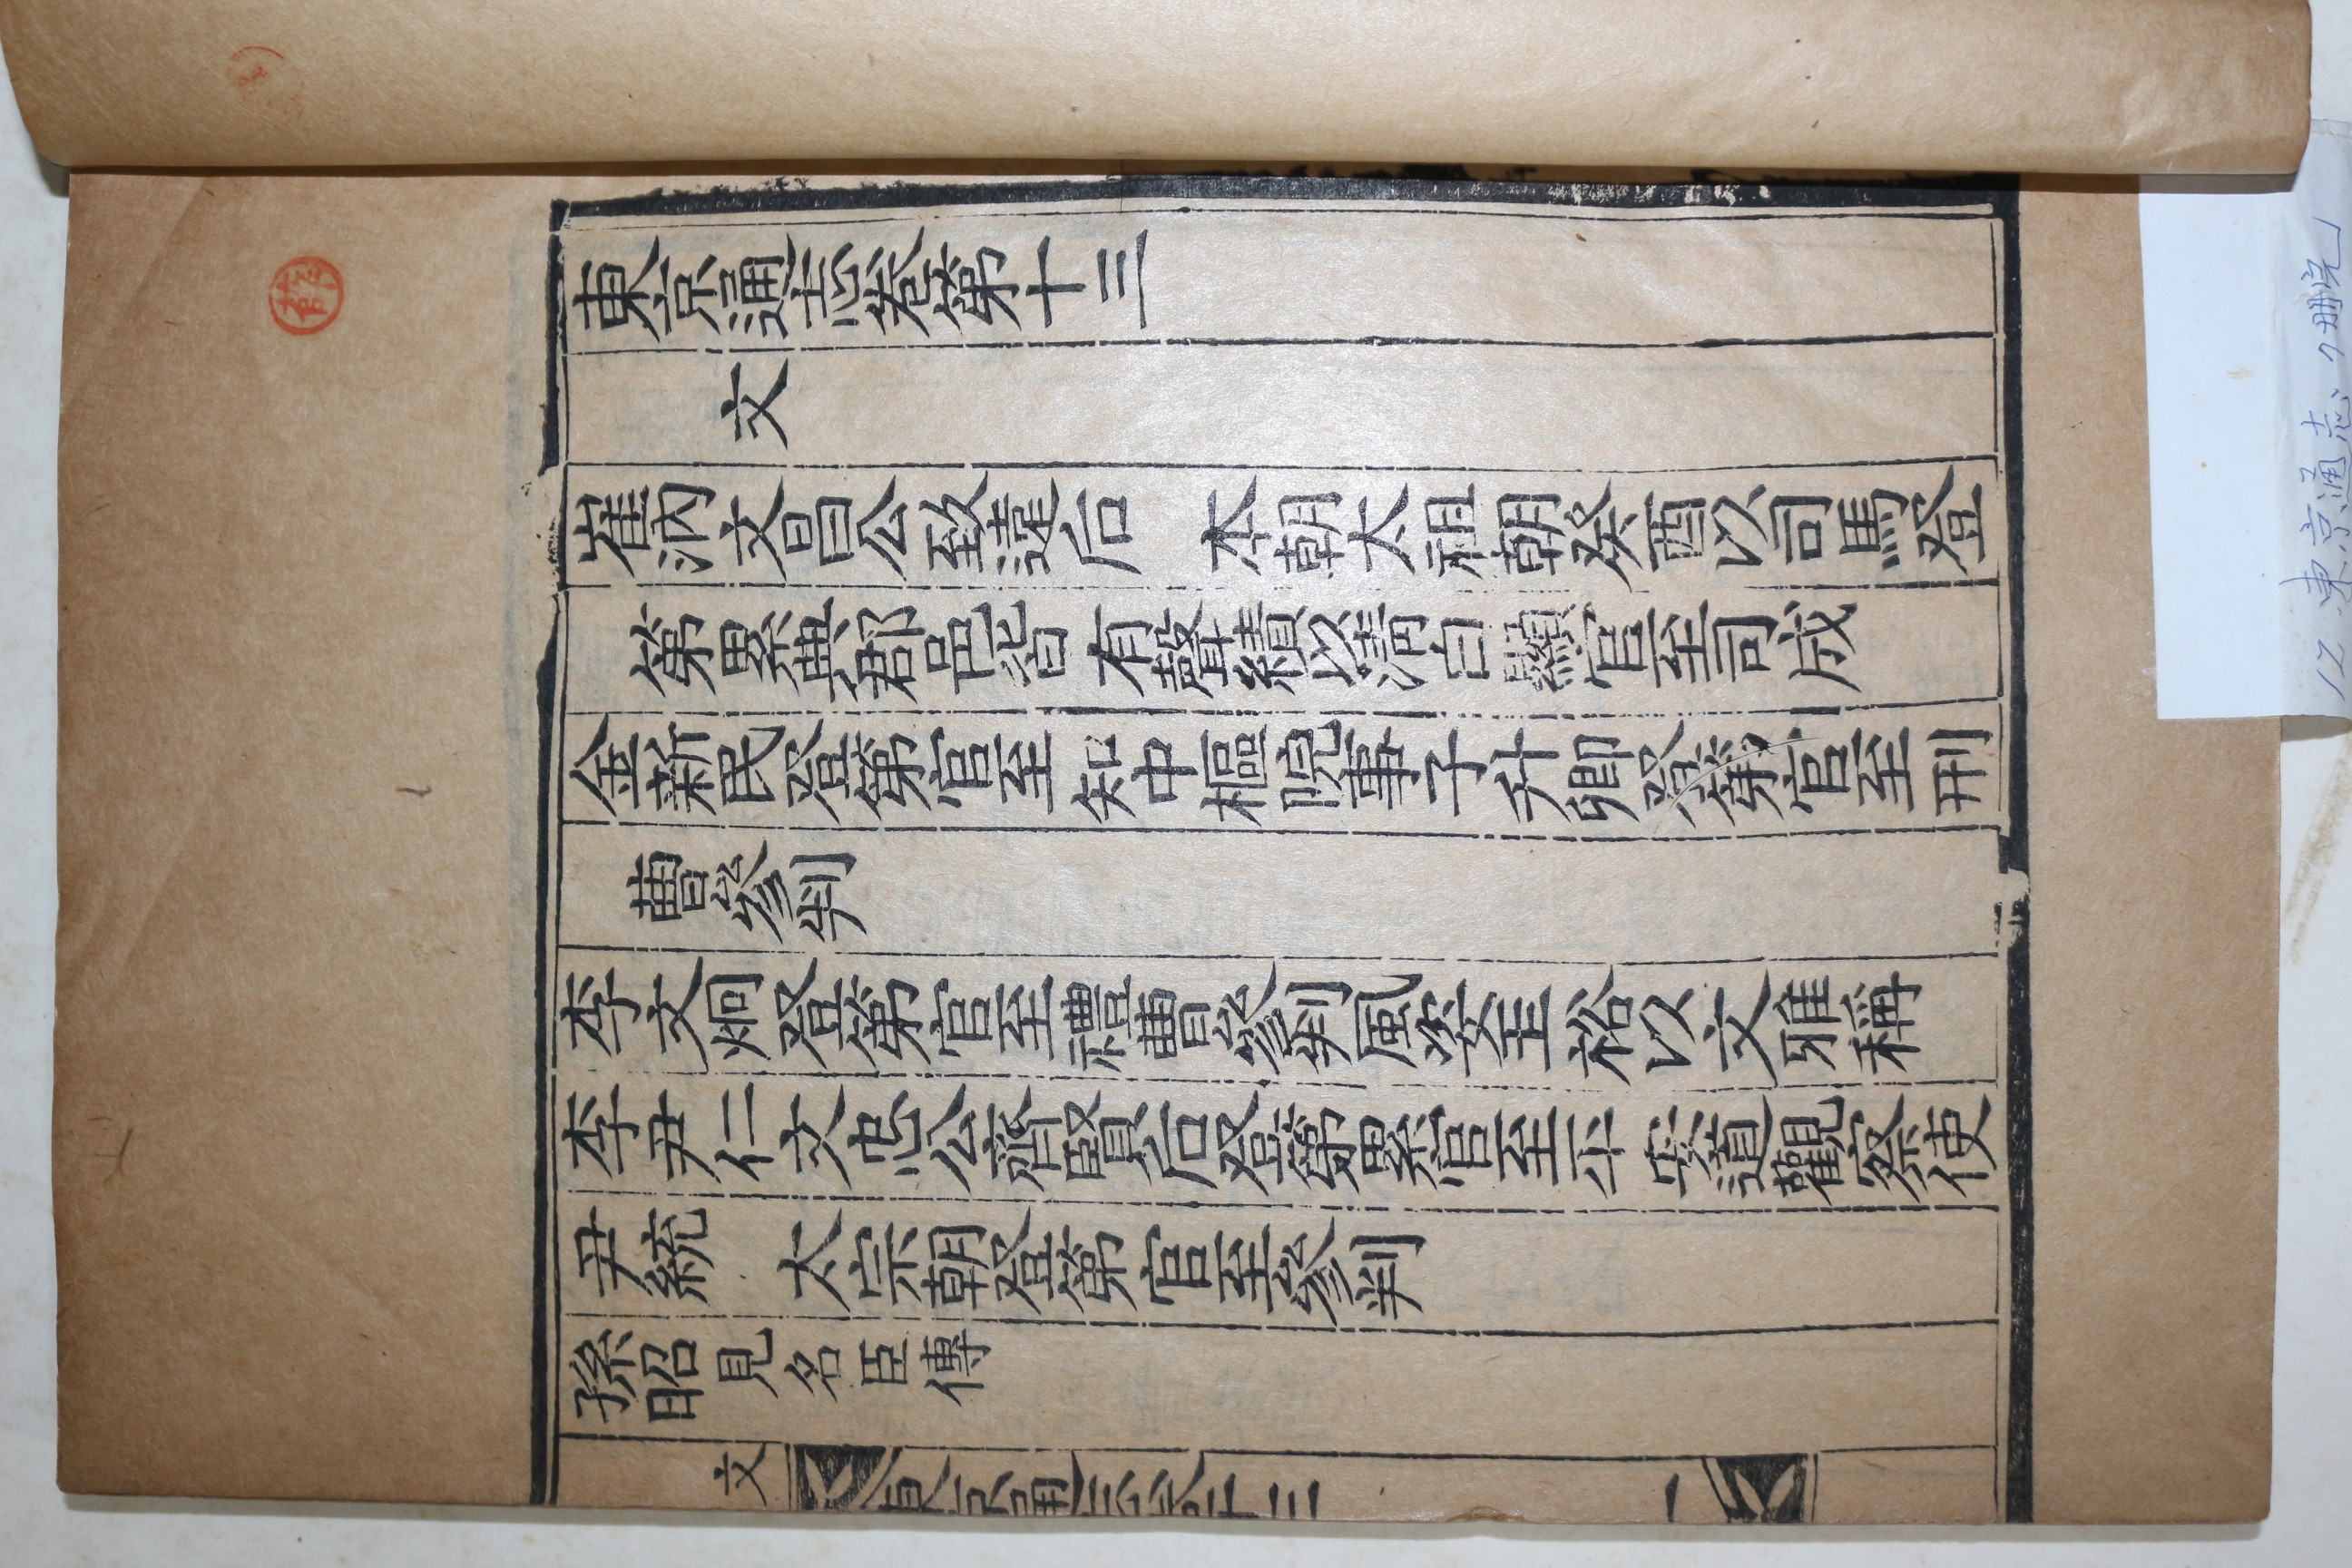 東京通志卷第十三
文
崔汭文昌公致遠后 本朝太祖朝癸酉以司馬登
第累典郡邑皆有聲績以淸白顯官至司成
金新民登第官至知中樞院事子升卿登第官至刑
曹參判
李文炯登第官至禮曹參判風姿玉裕以文雅稱
李尹仁文忠公齊賢后登第累官至平安道觀察使
尹統 太宗朝登第官至參判
孫昭見名臣傳
文
東京通志卷十三
一
12 東京通志 7冊完